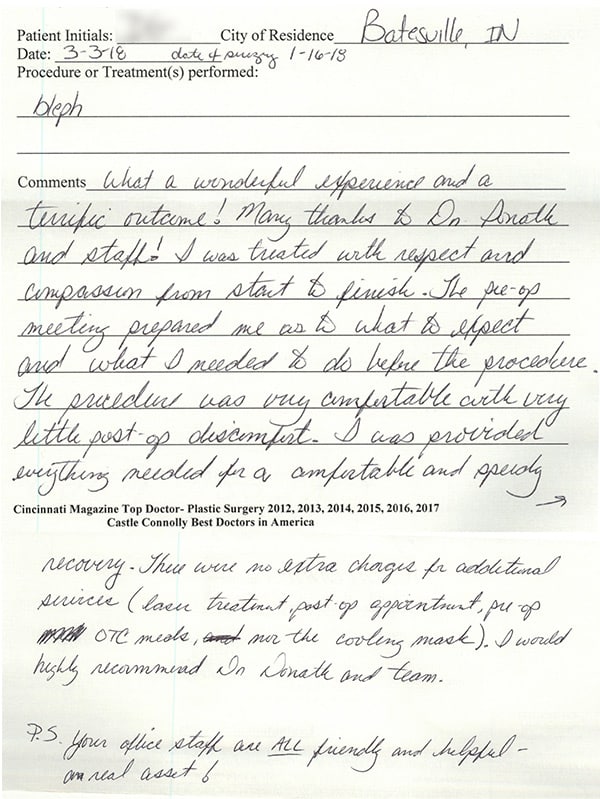 Patient Initials: City of Residence Batesville, IN
Date: 3-3-18 date of surgery 1-16-18
Procedure or Treatment(s) performed:
bleph
Comments What a wonderful experience and a
terrific outcome! Many thanks to Dr. Donath
and staff! I was treated with respect and
compassion from start to finish. The pre-op
meeting prepared me as to what to expect
and what I needed to do before the procedure.
The procedure was very comfortable with very
little post-op discomfort. I was provided
everything needed for a comfortable and speedy
→
Cincinnati Magazine Top Doctor- Plastic Surgery 2012, 2013, 2014, 2015, 2016, 2017
Castle Connolly Best Doctors in America
recovery. There were no extra charges for additional
services (laser treatment, post-op appointment, pre-op
OTC meds, and nor the cooling mask). I would
highly recommend Dr Donath and team.
P.S. Your office staff are ALL friendly and helpful -
a real asset!